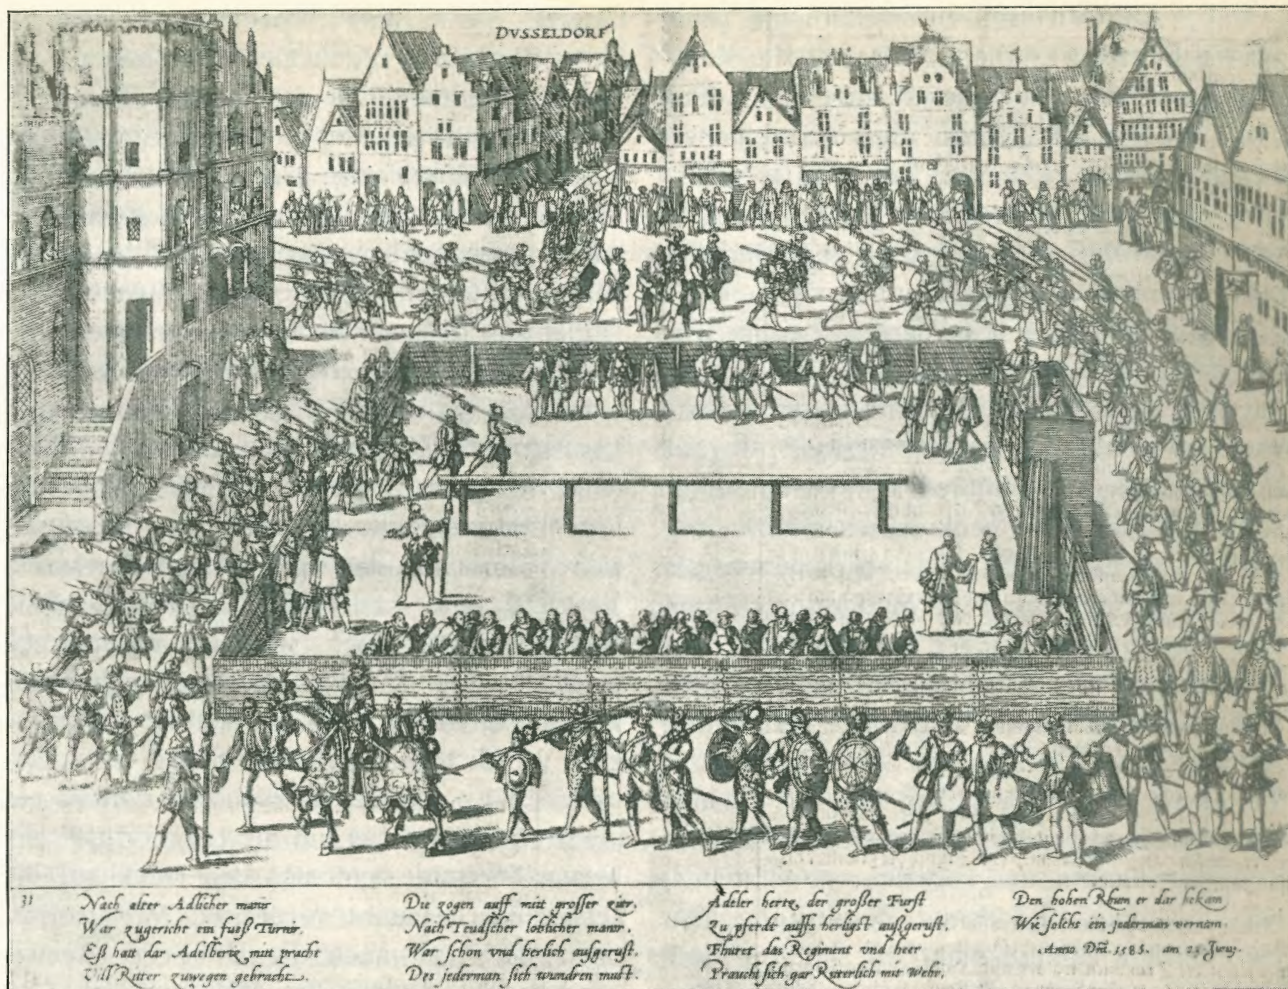 DVSSELDORF
31
Nach alter Adlicher manir
War zugericht ein fueß Turnir.
Eß hatt dar Adelhertz mitt pracht
Vill Ritter zuwegen gebracht.
Die zogen auff mitt grosser zier,
Nach Teudscher loblicher manir.
War schon vnd herlich außgerust.
Des jederman sich wundren must.
Adeler hertz, der großer Furst
Zu pferdt auffs herligst außgerust.
Fhuret das Regiment vnd heer
Praucht sich gar Ritterlich mit wehr,
Den hohen Rhum er dar bekam
Wie solchs ein jederman vernam.
Anno Dnī. 1585. am